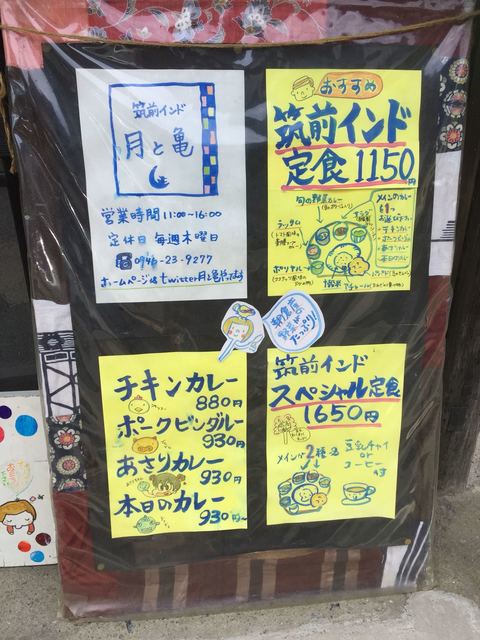 筑前インド
月と亀
営業時間 11:00〜16:00
定休日 毎週木曜日
☎0946-23-9277
ホームページはtwitter月と亀です
おすすめ
筑前インド
定食1150円
旬の野菜カレー
メインのカレー
を1つ
お選び下さい
・チキンカレー
ラッサム
ポリヤル
朝倉産
野菜が
たっぷり!
チキンカレー
880円
ポークビンダルー
930円
あさりカレー
930円
本日のカレー
930円〜
筑前インド
スペシャル定食
1650円
メインが2種と
豆乳チャイ
or
コーヒー
付